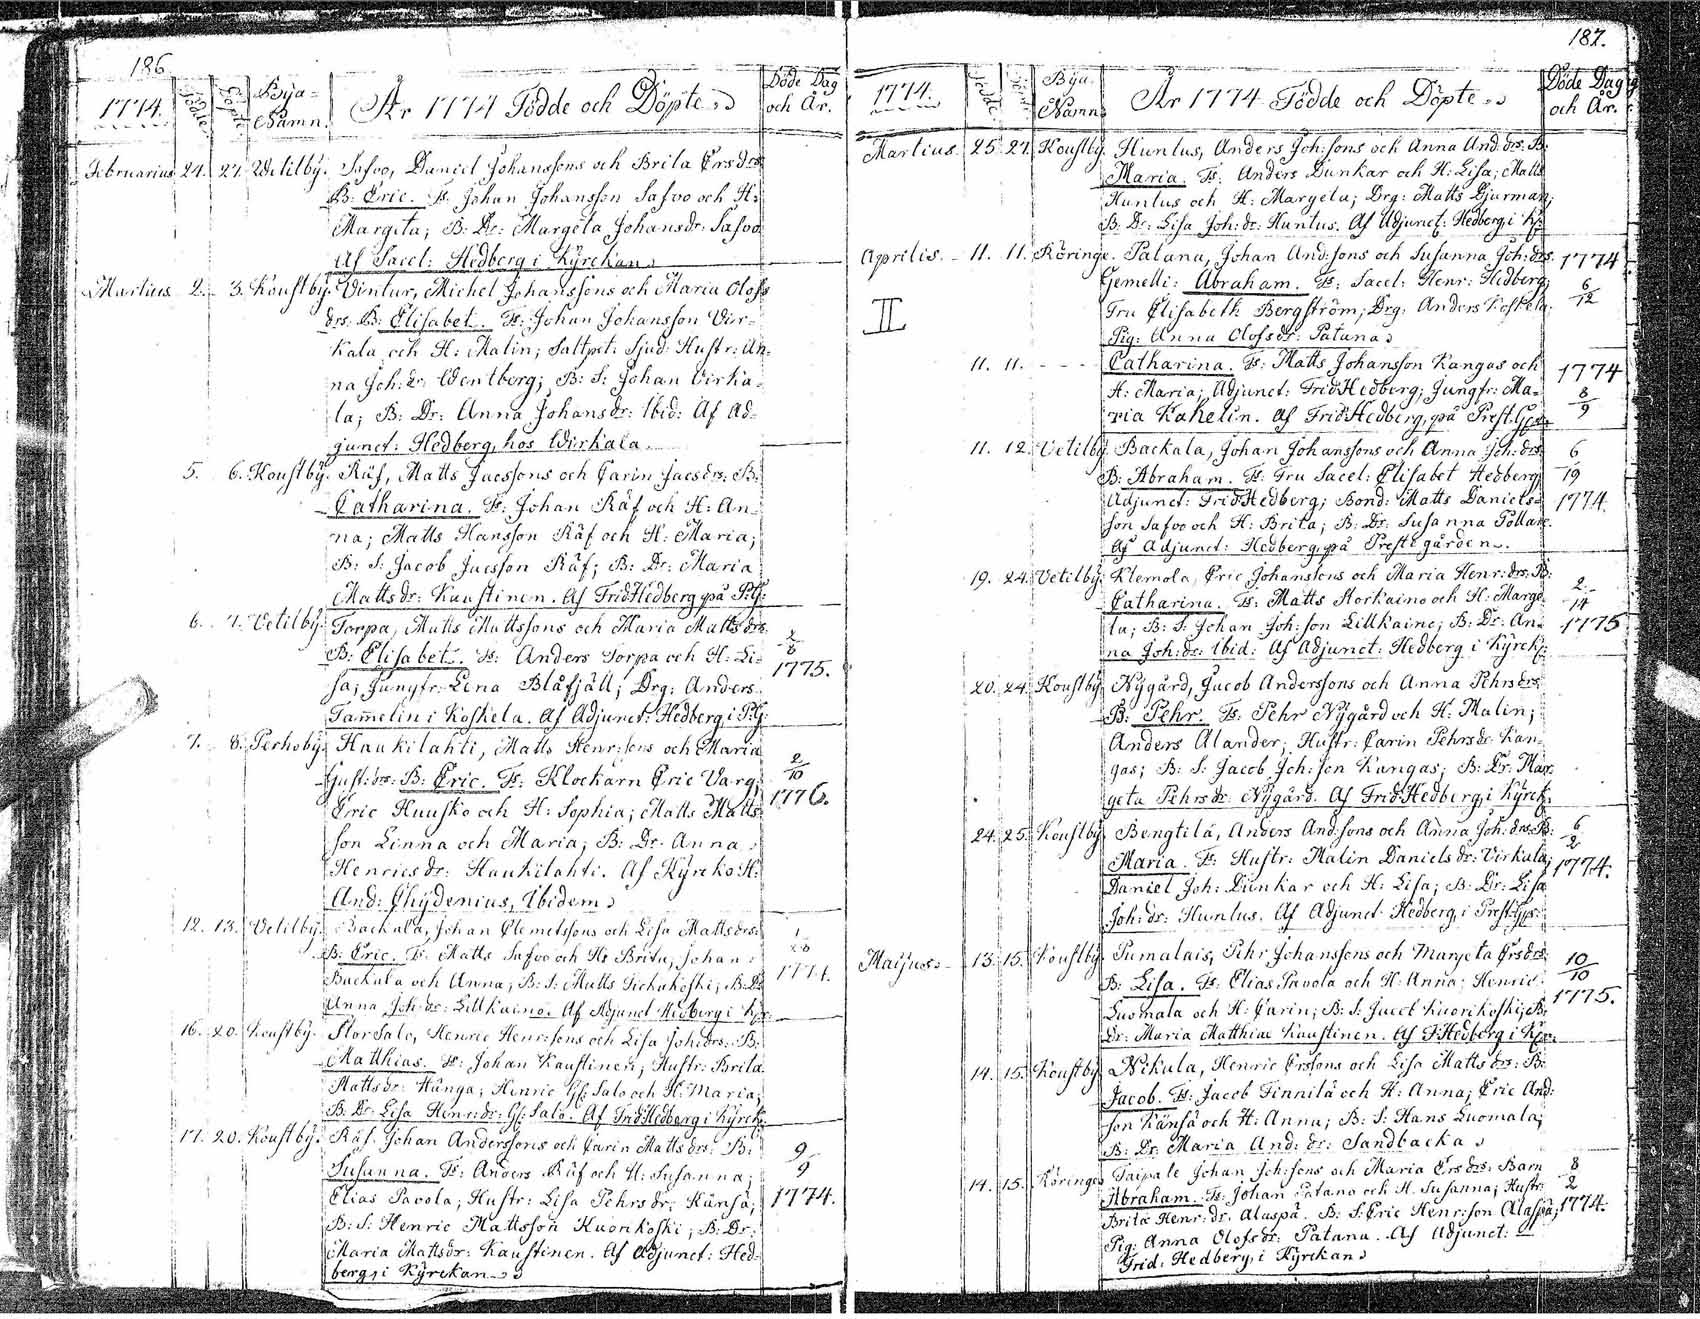 186
1774. Födde. Döpte. Bÿa-Namn. År 1774 Födde och Döpte. Döde Dag och År.
Februarius 24. 27. Wetilbÿ. Safvo, Daniel Johanssons och Brita Ersdrs
B: Eric. Fs: Johan Johansson Safvo och H:
Margeta; B: Dr: Margeta Johansdr: Safvo.
Af Sacel: Hedberg i Kÿrckan
Martius 2. 3. Koustbÿ. Vintur, Michel Johanssons och Maria Olofs
drs: B: Elisabet. Fs: Johan Johansson Vir-
kala och H: Malin; Saltpet: Sjud: Hustr: An-
na Joh: dr: Wentberg; B: S: Johan Virka-
la; B: Dr: Anna Johansdr: Ibid: Af Ad-
junct: Hedberg, hos Wirkala.
5. 6. Koustbÿ. Räf, Matts Jacssons och Carin Jacsdrs: B:
Catharina. Fs: Johan Räf och H: An-
na; Matts Hansson Räf och H: Maria;
B: S: Jacob Jacsson Räf; B: Dr: Maria
Mattsdr: Kaustinen. Af Frid Hedberg på P:G:
6. 7. Vetilbÿ. Torpa, Matts Mattssons och Maria Mattsdrs
B: Elisabet. Fs: Anders Torpa och H: Li-
sa; Jungfr: Lena Blåfjäll; Drg: Anders
Tamelin i Koskela. Af Adjunct: Hedberg i P:G:
2/8 1775.
7. 8. Perhobÿ. Haukilahti, Matts Henr: sons och Maria
Gust: drs: B: Eric. Fs: Klockarn Eric Varg;
Eric Huusko och H: Sophia; Matts Matts-
son Linna och Maria; B: Dr: Anna
Henricsdr: Haukilahti. Af Kÿrcko H:
And: Chÿdenius, Ibidem
2/10 1776.
12. 13. Vetilbÿ. Backala, Johan Clemetssons och Lisa Mattsdrs:
B: Eric. Fs: Matts Safvo och H: Brita; Johan
Backala och Anna; B: S: Matts Tichukoski; B: Dr
Anna Joh: dr: Lillkaino. Af Adjunct Hedberg i Kÿr:
1/28 1774.
16. 20. Koustbÿ. Stor Salo, Henric Henr: sons och Lisa Joh: drs: B:
Matthias. Fs: Johan Kaustinen; Hustr: Brita
Mattsdr: Hånga; Henric Salo och H: Maria;
B: Dr: Lisa Henr: dr: Salo. Af Frid Hedberg i Kÿrck:
17. 20. Koustbÿ. Räf, Johan Anderssons och Carin Mattsdrs: B:
Susanna. Fs: Anders Räf och H: Susanna;
Elias Pavola; Hustr: Lisa Pehrsdr: Känsä;
B: S: Henric Mattsson Kuorikoski; B: Dr:
Maria Mattsdr: Kaustinen. Af Adjunct: Hed-
berg, i Kÿrckan
9/9 1774.
187.
1774. Födde. Döpte. Bÿa-Namn. År 1774 Födde och Döpte. Döde Dag och År.
Martius. 25. 27. Koustbÿ. Huntus, Anders Joh: sons och Anna And: drs: B:
Maria. Fs: Anders Dunkar och H: Lisa; Matts
Huntus och H: Margeta; Drg: Matts Djurman;
B: Dr: Lisa Joh: dr: Huntus. Af Adjunct: Hedberg, i K:
Aprilis. 11. 11. Röringe. Patana, Johan And: sons och Susanna Joh: drs
Gemelli: Abraham. Fs: Sacel: Henr: Hedberg;
Fru Elisabeth Bergström; Drg: Anders Koskela;
Pig: Anna Olofsdr: Patana
1774 6/12
II
11. 11. Catharina. Fs: Matts Johansson Kangas och
H: Maria; Adjunct: Frid Hedberg; Jungfr: Ma-
ria Kahelin. Af Frid Hedberg, på Prest: G:
1774 8/9
11. 12. Vetilbÿ Backala, Johan Johanssons och Anna Joh: drs
B: Abraham. Fs: Fru Sacel: Elisabet Hedberg
Adjunct: Frid Hedberg; Bond: Matts Daniels-
son Safvo och H: Brita; B: Dr: Susanna Pollare.
Af Adjunct: Hedberg, på Prestegården.
6/19 1774.
19. 24. Vetilbÿ. Klemola, Eric Johanssons och Maria Henr: drs: B:
Catharina. Fs: Matts Storkaino och H: Marge-
ta; B: S: Johan Joh: son Lillkaino; B: Dr: An-
na Joh: dr: Ibid: Af Adjunct: Hedberg i Kÿrck:
2/14 1775
20. 24. Koustbÿ. Nÿgård, Jacob Anderssons och Anna Pehrsdrs
B: Pehr. Fs: Pehr Nÿgård och H: Malin;
Anders Alander; Hustr: Carin Pehrsdr: Kan-
gas; B: S: Jacob Joh: son Kangas; B: Dr: Mar-
geta Pehrsdr: Nÿgård. Af Frid Hedberg, i Kÿrck:
24. 25. Koustbÿ Bengtilä, Anders And: sons och Anna Joh: drs: B:
Maria. Fs: Hustr: Malin Danielsdr: Virkala;
Daniel Joh: Dunkar och H: Lisa; B: Dr: Lisa
Joh: dr: Huntus. Af Adjunct Hedberg, i Prest:
6/2 1774.
Maijus. 13. 15. Koustbÿ Pumalais, Pehr Johanssons och Margeta Ersdrs
B: Lisa. Fs: Elias Pavola och H: Anna; Henric
Luomala och H: Carin; B: S: Jacob Kuorikoski; B:
Dr: Maria Matthiae Kaustinen. Af F: Hedberg i Kÿr:
10/10 1775.
14. 15. Koustbÿ Nikula, Henric Erssons och Lisa Mattsdrs: B:
Jacob. Fs: Jacob Finnilä och H: Anna; Eric And:
son Känsä och H: Anna; B: S: Hans Luomala;
B: Dr: Maria And: dr: Sandbacka
14. 15. Röringe Taipale Johan Joh: sons och Maria Ersdrs: Barn
Abraham. Fs: Johan Patana och H. Susanna; Hustr:
Brita Henr: dr. Alaspä. B: S: Eric Henr: son Alaspä;
Pig: Anna Olofsdr: Patana. Af Adjunct:
Frid. Hedberg, i Kÿrckan
8/2 1774.